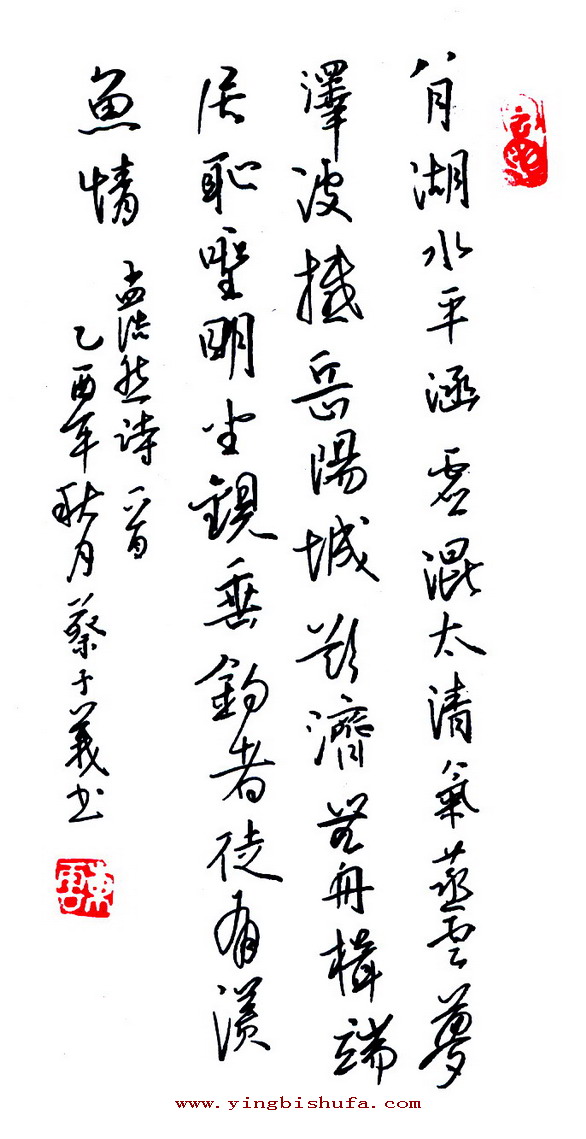 八月湖水平涵虚混太清氣蒸雲夢
澤波撼岳陽城欲濟無舟楫端
居恥聖明坐觀垂釣者徒有羡
魚情
孟浩然詩一首
乙酉年秋月蔡子義書
www.yingbishufa.com